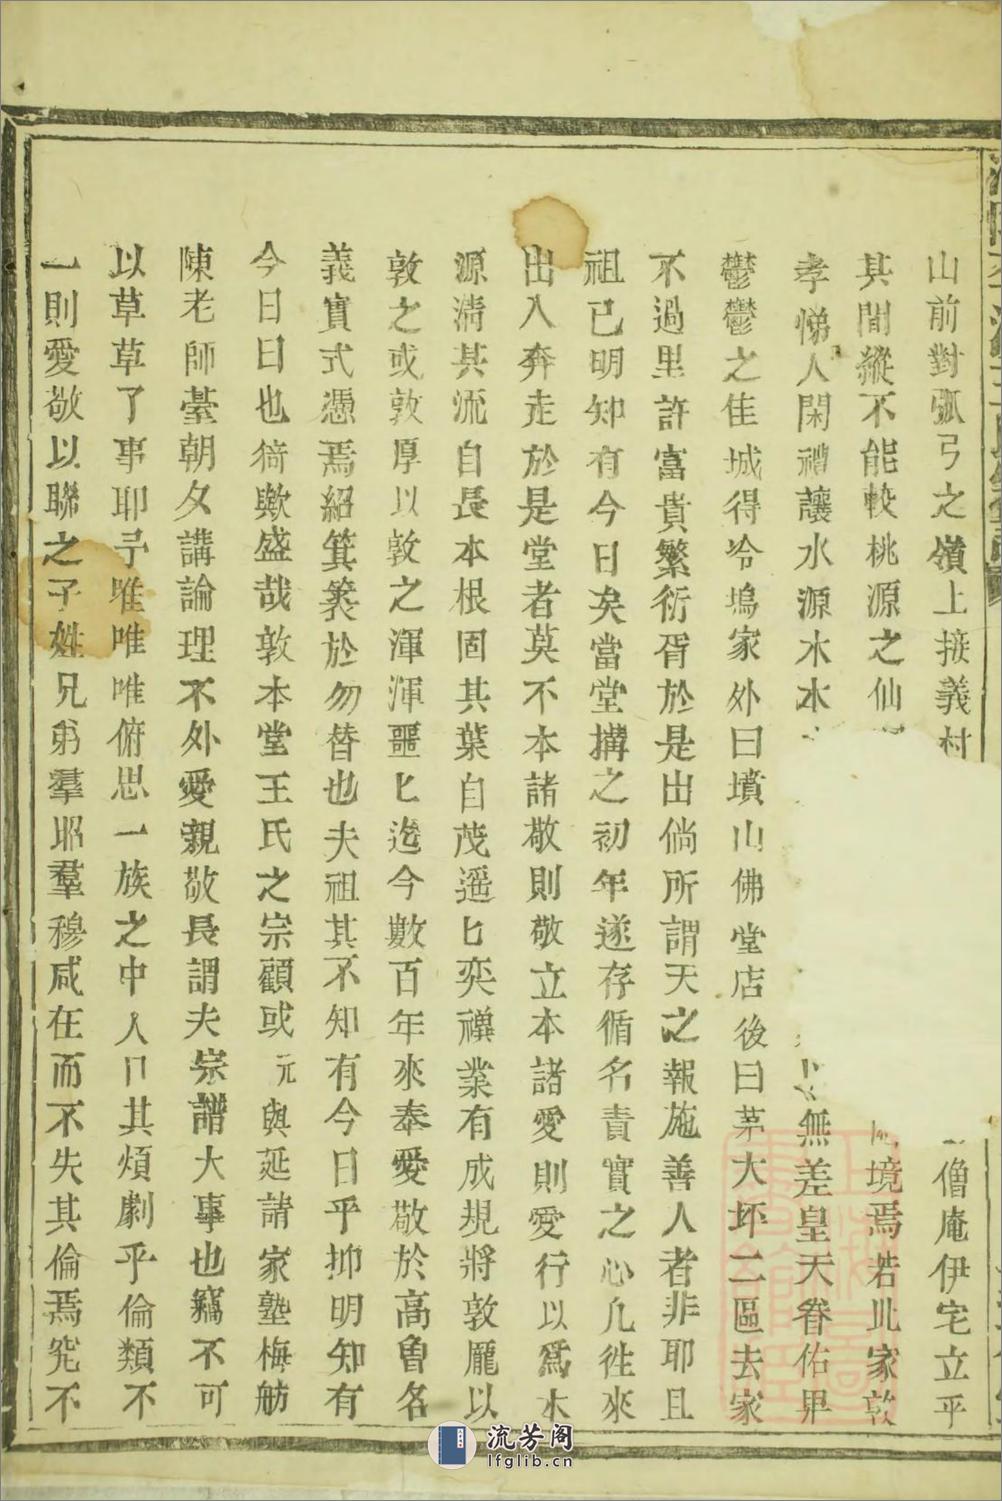 山前對弧弓之嶺上接義村
僧庵伊宅立乎
其間縱不能較桃源之仙
境焉若此家敦
孝悌人閑禮讓水源木本
無差皇天眷佑畀
鬱鬱之佳城得冷塢家外曰墳山佛堂店後曰茅大坪二區去家
不過里許富貴繁衍胥於是出倘所謂天之報施善人者非耶且
祖已明知有今日矣當堂搆之初年遂存循名責實之心凢徃來
出入奔走於是堂者莫不本諸敬則敬立本諸愛則愛行以爲木
源淸其流自長本根固其葉自茂遥匕奕禩業有成規將敦龐以
敦之或敦厚以敦之渾渾噩匕迨今數百年來奉愛敬於高曾名
義實式憑焉紹箕裘於勿替也夫祖其不知有今日乎抑明知有
今日曰也猗歟盛哉敦本堂王氏之宗顧或元與延請家塾梅舫
陳老師臺朝夕講論理不外愛親敬長謂夫宗譜大事也竊不可
以草草了事耶予唯唯唯俯思一族之中人口其煩劇乎倫類不
一則愛敬以聯之子姓兄弟羣昭羣穆咸在而不失其倫焉究不
流芳阁
lfglib.cn